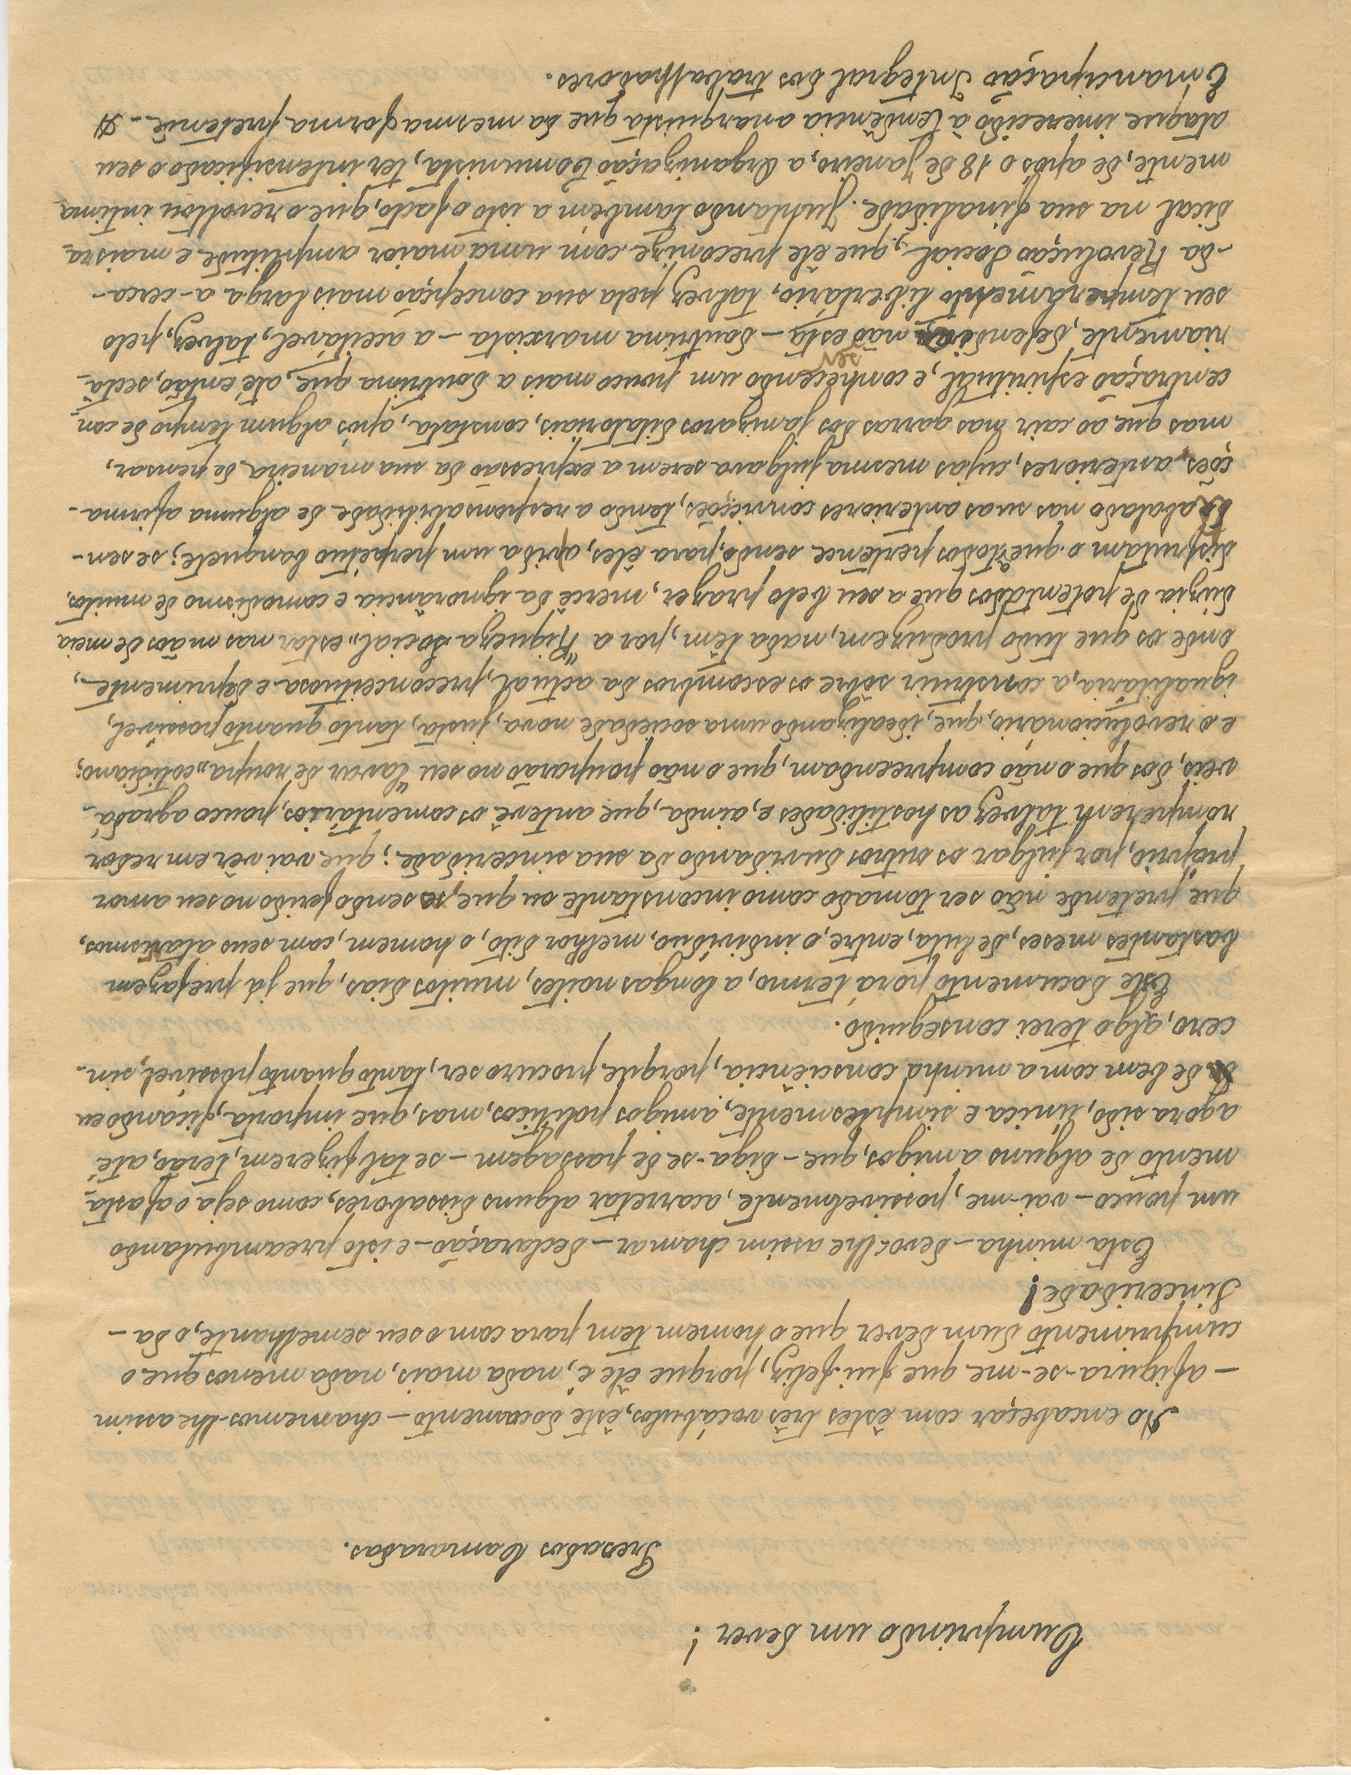 Cumprindo um dever!
Presados Camaradas.
Ao encabeçar com êstes três vocábulos, êste documento – chamemos-lhe assim
– afigura-se-me que fui feliz, porque êle é, mais, nada menos que o
cumprimento dum dever que o homem tem para com o seu semelhante, o da –
Sinceridade!
Esta minha – devo-lhe assim chamar – declaração – e isto preambulando
um pouco – vai-me, possivelmente, acarretar alguns dissabores, como seja o afasta-
mento de alguns amigos, que – diga-se de passagem – se tal fizerem, terão, até
agora sido, única e simplesmente, amigos políticos, mas, que importa, ficando eu
de bem com a minha consciência, porque procuro ser, tanto quanto possível, sin-
cero, algo terei conseguido.
Este documento porá têrmo, a longas noites, muitos dias, que já prefazem
bastantes meses, de luta, entre, o indivíduo, melhor dito, o homem, com seus atavismos,
que pretende não ser tomado como inconstante ou que, se sendo ferido no seu amor
próprio, por julgar os outros duvidando da sua sinceridade; que vai vêr em redor
romperem talvez as hostilidades e, ainda, que antevê os comentários, pouco agradá-
veis, dos que o não compreendam, que o não pouparão no seu "Lavar de roupa" cotidiano;
e o revolucionário, que, idealizando uma sociedade nova, justa, tanto quanto possível,
igualitária, a construir sôbre os escombros da actual, preconceituosa e deprimente,
onde os que tudo produzem, nada têm, por a "Riqueza Social" estar nas mãos de meia
dúzia de potentados que a seu belo prazer, mercê da ignorância e comodismo de muitos,
disfrutam o que a todos pertence sendo, para êles, a vida um perpétuo banquete; se sen-
te abalado nas suas anteriores convicções, tendo a responsabilidade de alguma afirma-
ções anteriores, cujas mesma julgava serem a expressão da sua maneira de pensar,
mas que ao cair nas garras dos janizaros ditatoriais, constata, após algum tempo de con
centração espiritual, e conhecendo um pouco mais a doutrina que, até então, sectá-
riamente, defendia não ser esta – doutrina marxista – a aceitável, talvez, pelo
seu temperamento libertário, talvez pela sua concepção mais larga a-cerca-
-da Revolução Social, que êle preconize com uma maior amplitude e mais ra-
dical na sua finalidade. Juntando também a isto o facto, que o revoltou intima-
mente, de após o 18 de Janeiro, a Organização Comunista, ter intensificado o seu
ataque imerecido à tendência anarquista que da mesma forma pretende – A
Emancipação Integral dos trabalhadores.